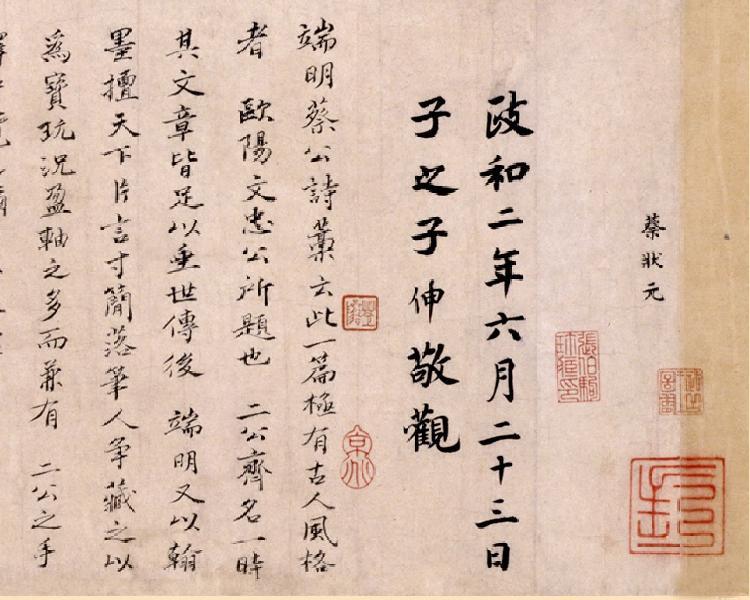 蔡狀元
政和二年六月二十三日
子之子伸敬觀
端明蔡公詩藁云此一篇極有古人風格
者歐陽文忠公所題也二公齊名一時
其文章皆足以垂世傳後端明又以翰
墨擅天下片言寸簡落筆人爭藏之以
爲寶玩況盈軸之多而兼有二公之手
張伯駒珍藏印